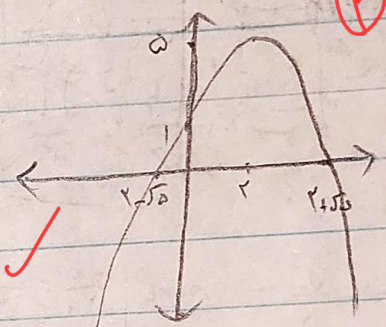 ۵
۱
۲-√۵ ۲ ۲+√۵